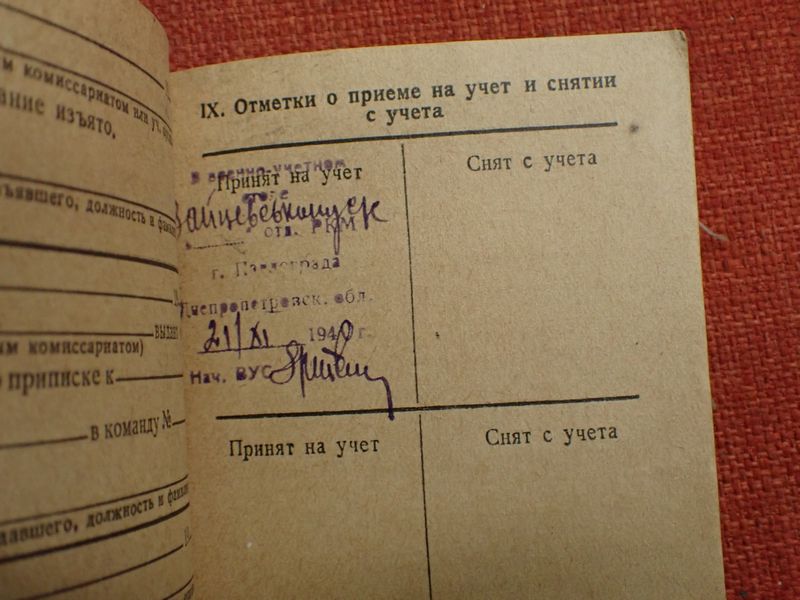 м комиссариатом или уч.
ание изъято.
ъявшего, должность и
выдан
ым комиссариатом)
о приписке к
в команду №
давшего, должность и
IX. Отметки о приеме на учет и снятии
с учета
Принят на учет
Снят с учета
В военно-учетном
столе
отд. РКМ
г. Павлограда
Днепропетровск. обл.
21/XI 1940 г.
Нач. ВУС
Принят на учет
Снят с учета